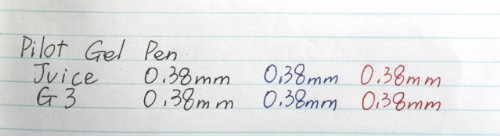 Pilot Gel Pen
Juice 0.38mm 0.38mm 0.38mm
G3 0.38mm 0.38mm 0.38mm